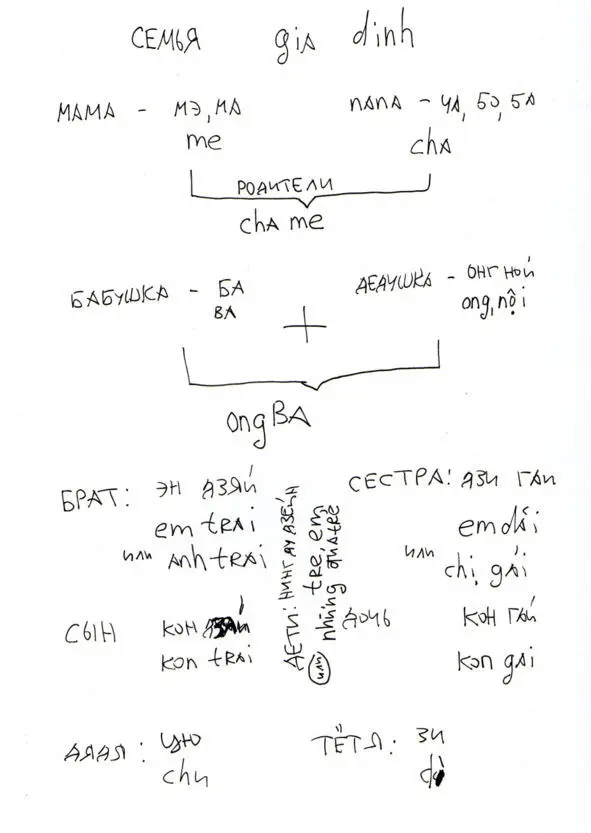 СЕМЬЯ gia dinh
МАМА - МЭ, МА ПАПА - ЧА, БО, БА
me cha
РОДИТЕЛИ
cha me
БАБУШКА - БА ДЕДУШКА - ОНГ НОЙ
BA ong, nội
+
ong BA
БРАТ: ЭН ДЗЯЙ СЕСТРА: ДЗИ ГАИ
em trai em dấi
или anh trai или chị, gái
ДЕТИ: НИНГ ДУ ДЗЕЙН
tre, em
или những đứa trẻ
СЫН КОН ДЗЯЙ ДОЧЬ КОН ГАЙ
kon trai kon gai
ДЯДЯ: ЦЮ ТЁТЯ: ЗИ
chu dì